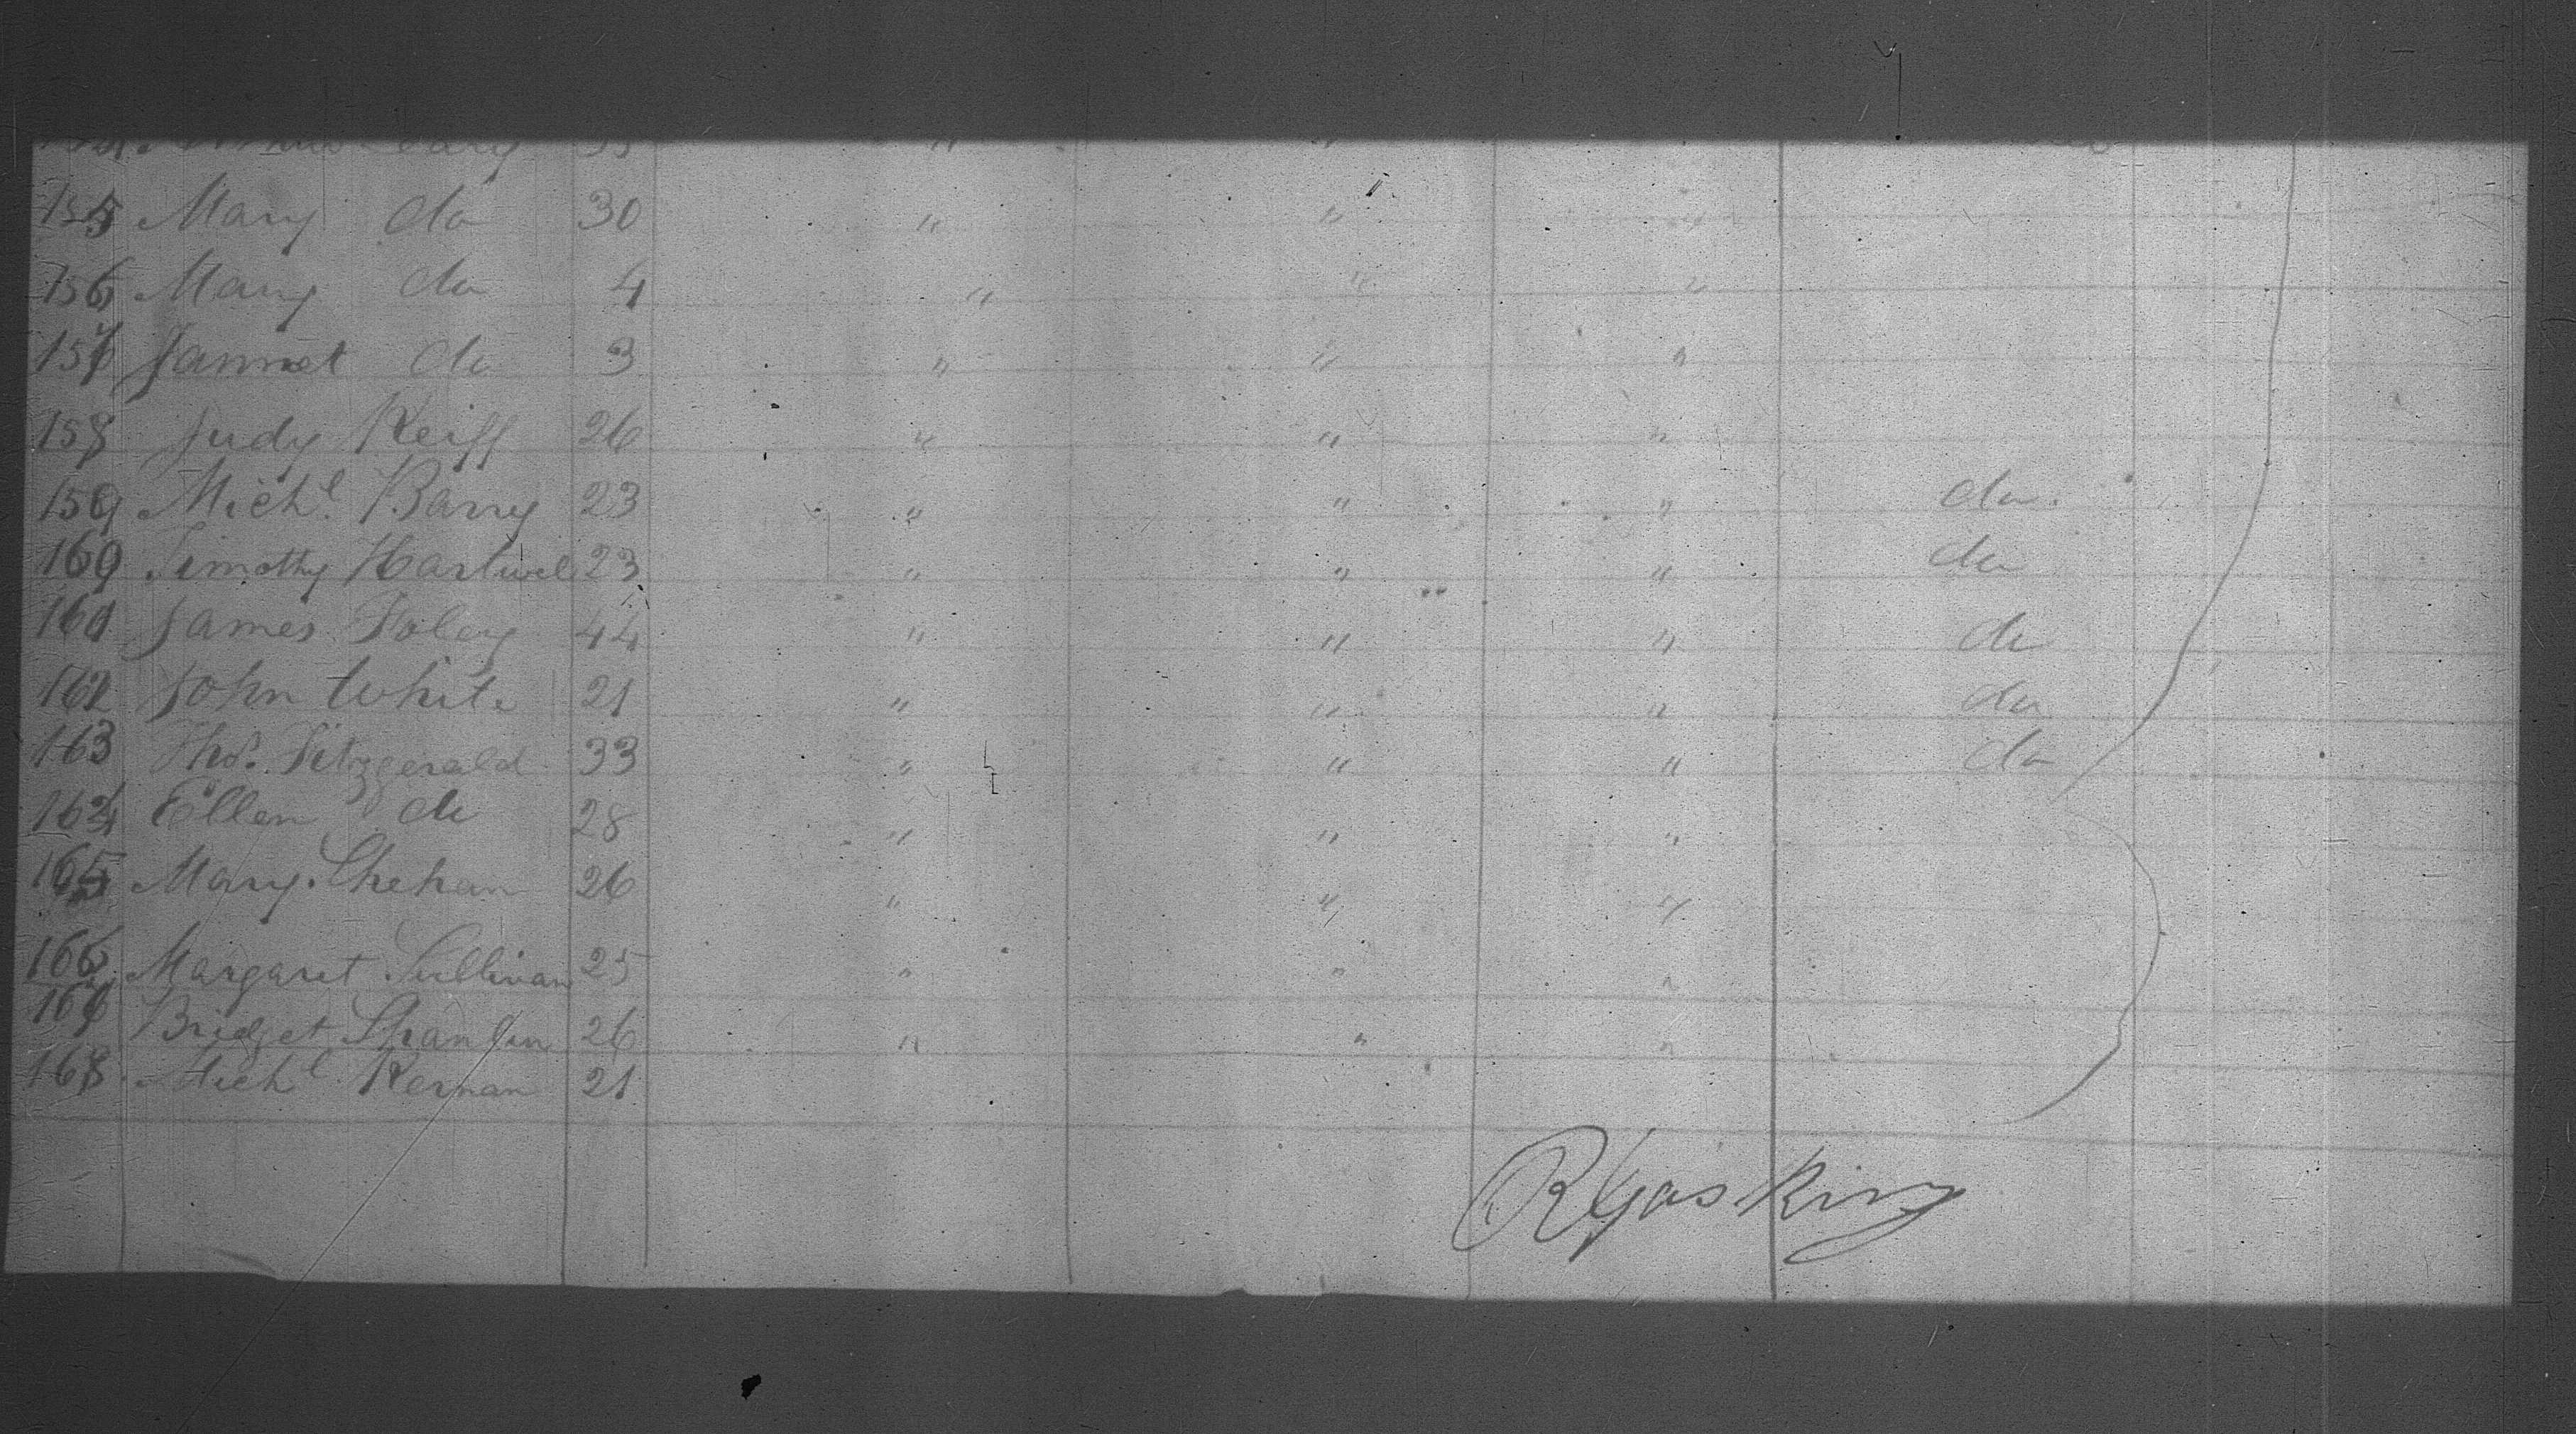 155 Mary do 30 " " "
156 Mary do 4 " " "
157 Jannet do 3 " " "
158 Judy Keiff 26 " " "
159 Michl. Barry 23 " " " do
160 Timothy Hartwel 23 " " " do
161 James Foley 44 " " " do
162 John White 21 " " " do
163 Thos. Fitzgerald 33 " " " do
164 Ellen do 28 " " "
165 Mary Shehan 26 " " "
166 Margaret Sullivan 25 " " "
167 Bridget 26 " " "
168 Michl. Kernan 21
R Gasking